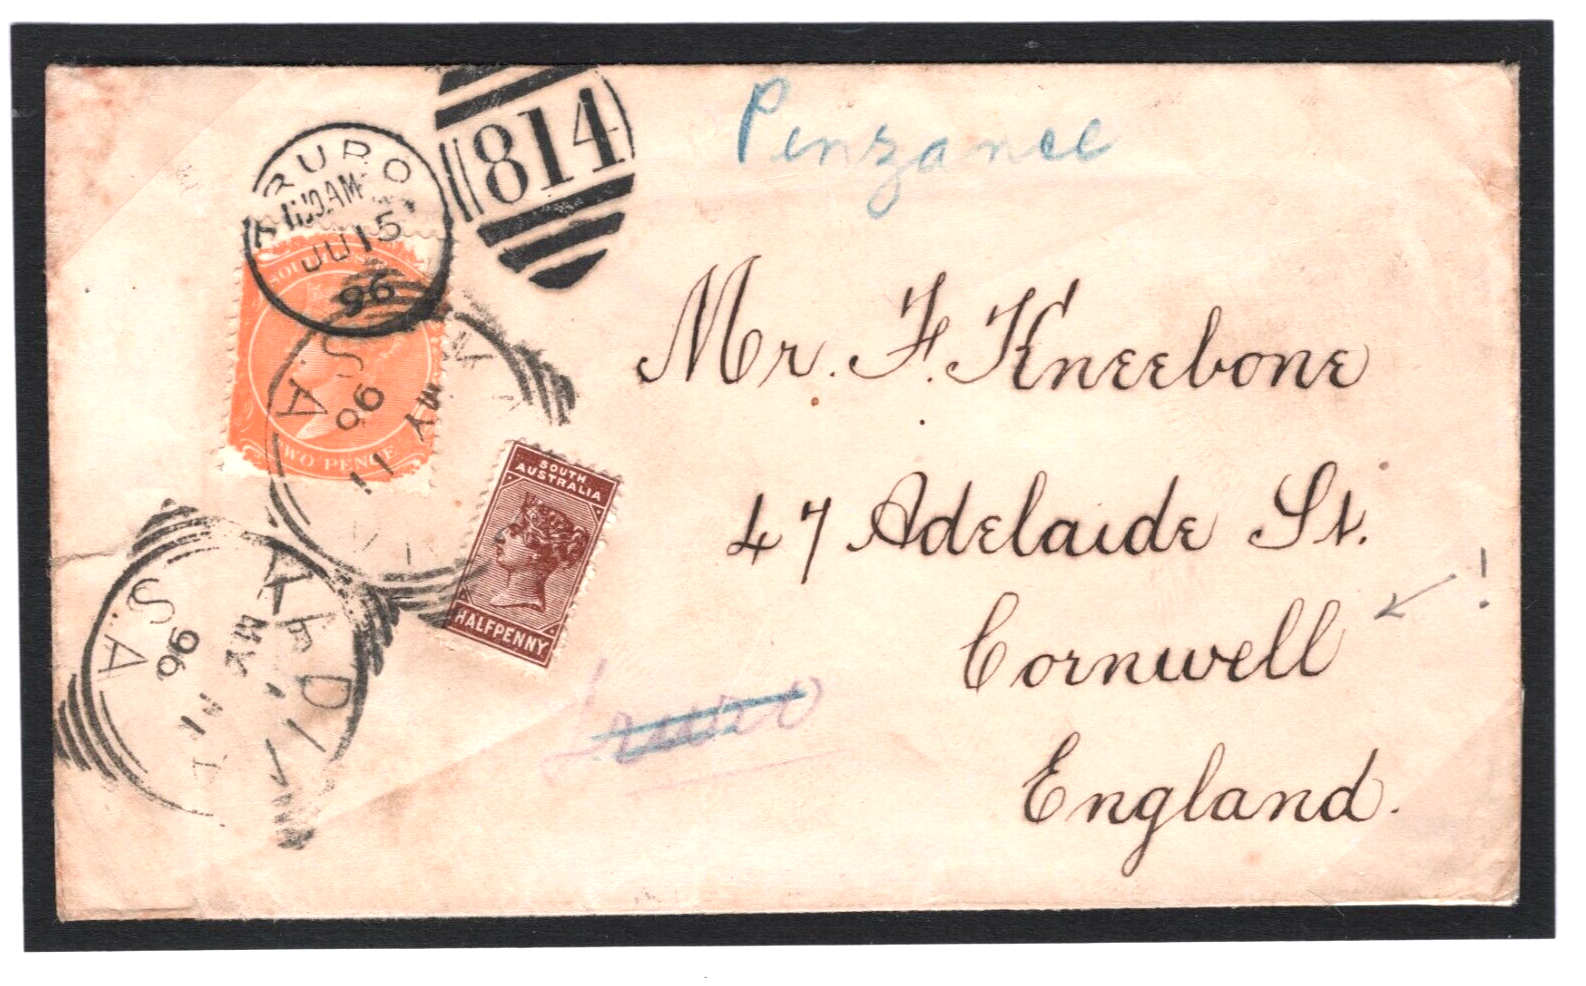 Penzance
814
TRURO
11 30 AM
JU 15
96
SOUTH
TWO PENCE
S.A
MY 11
96
SOUTH
AUSTRALIA
HALFPENNY
S.A
MY 11
96
Mr. F. Kneebone
47 Adelaide St.
Cornwell
!
England.
Truro